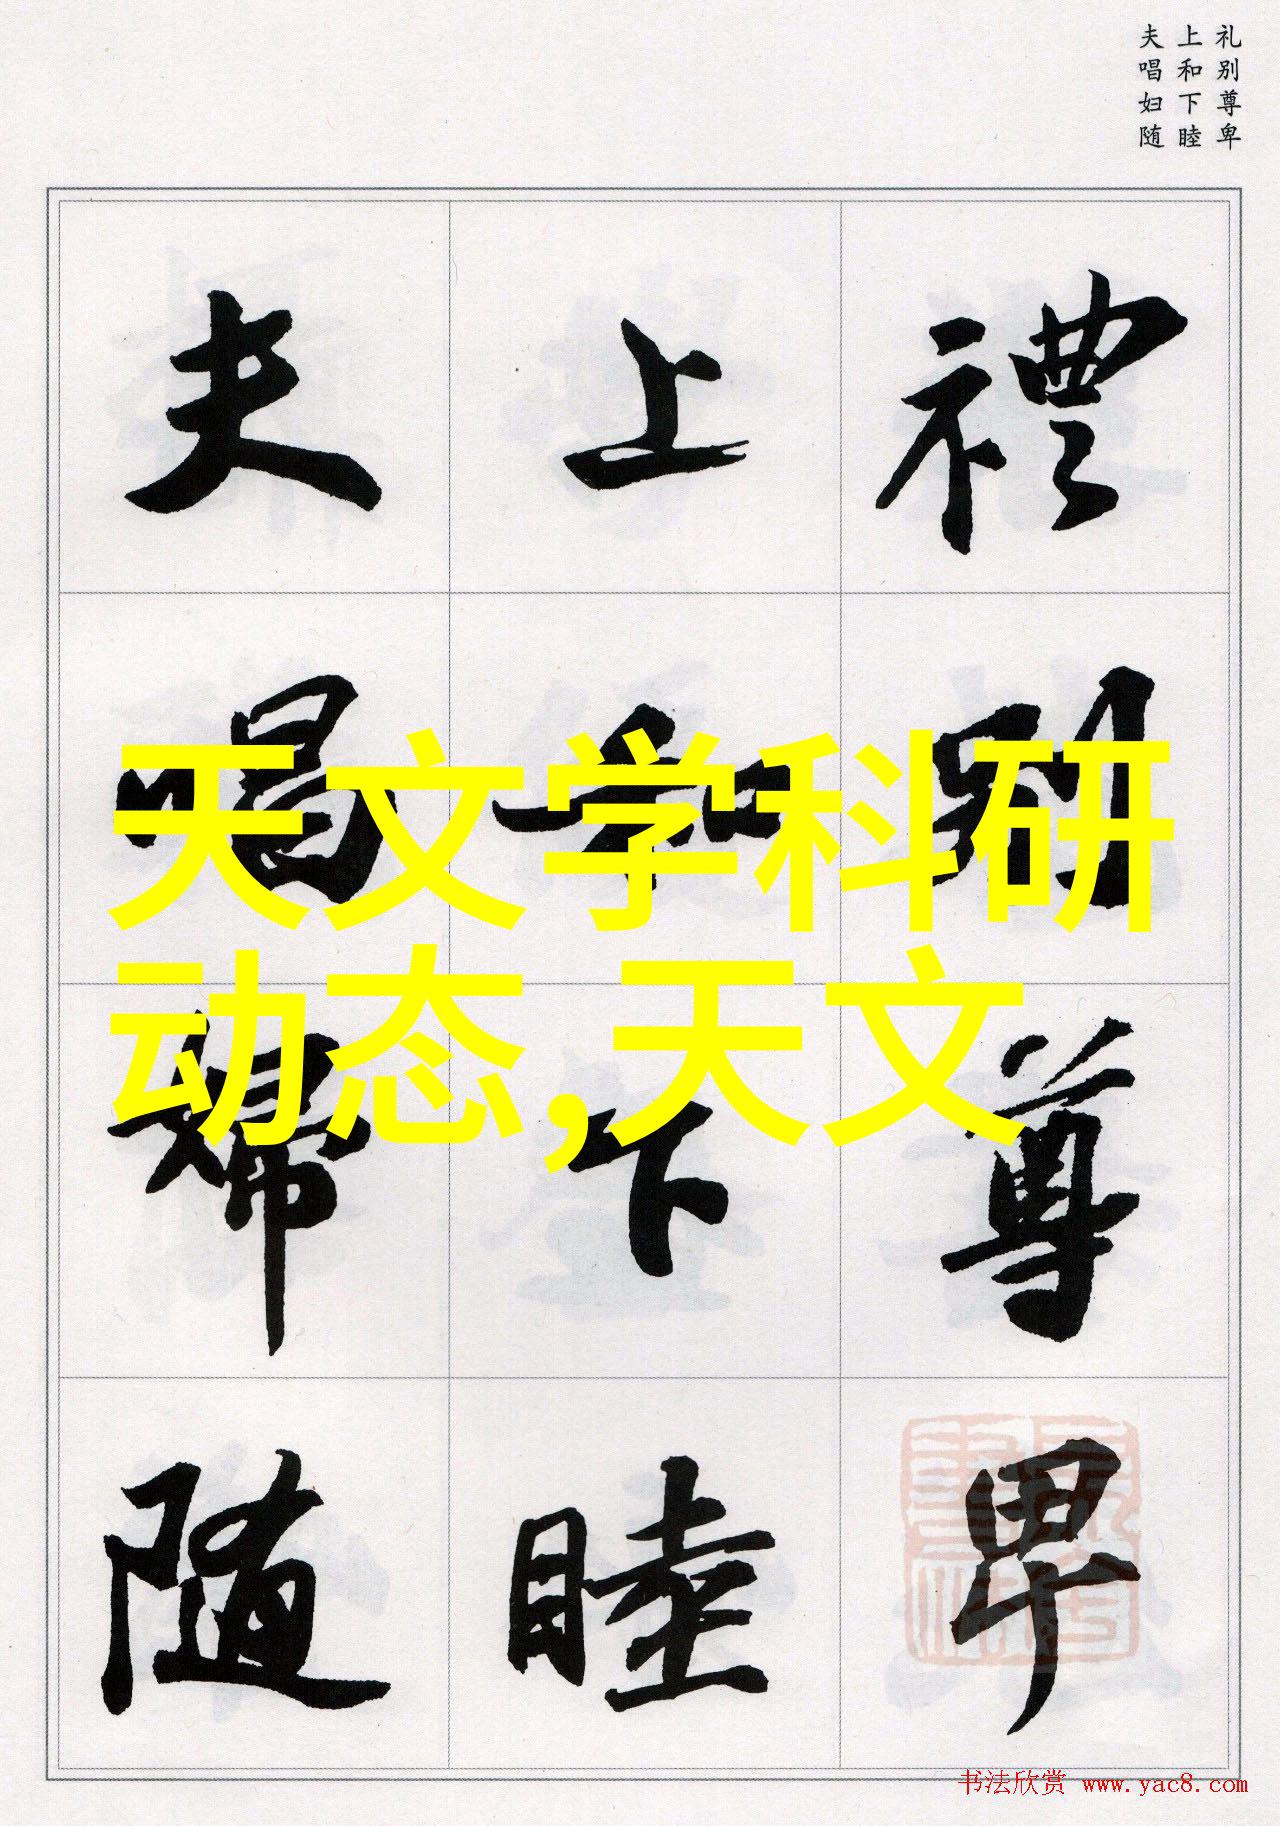 礼别尊卑
上和下睦
夫唱妇随
禮别尊卑
上和下睦
夫唱婦随
天文学科研
动态,天文
书法欣赏 www.yac8.com